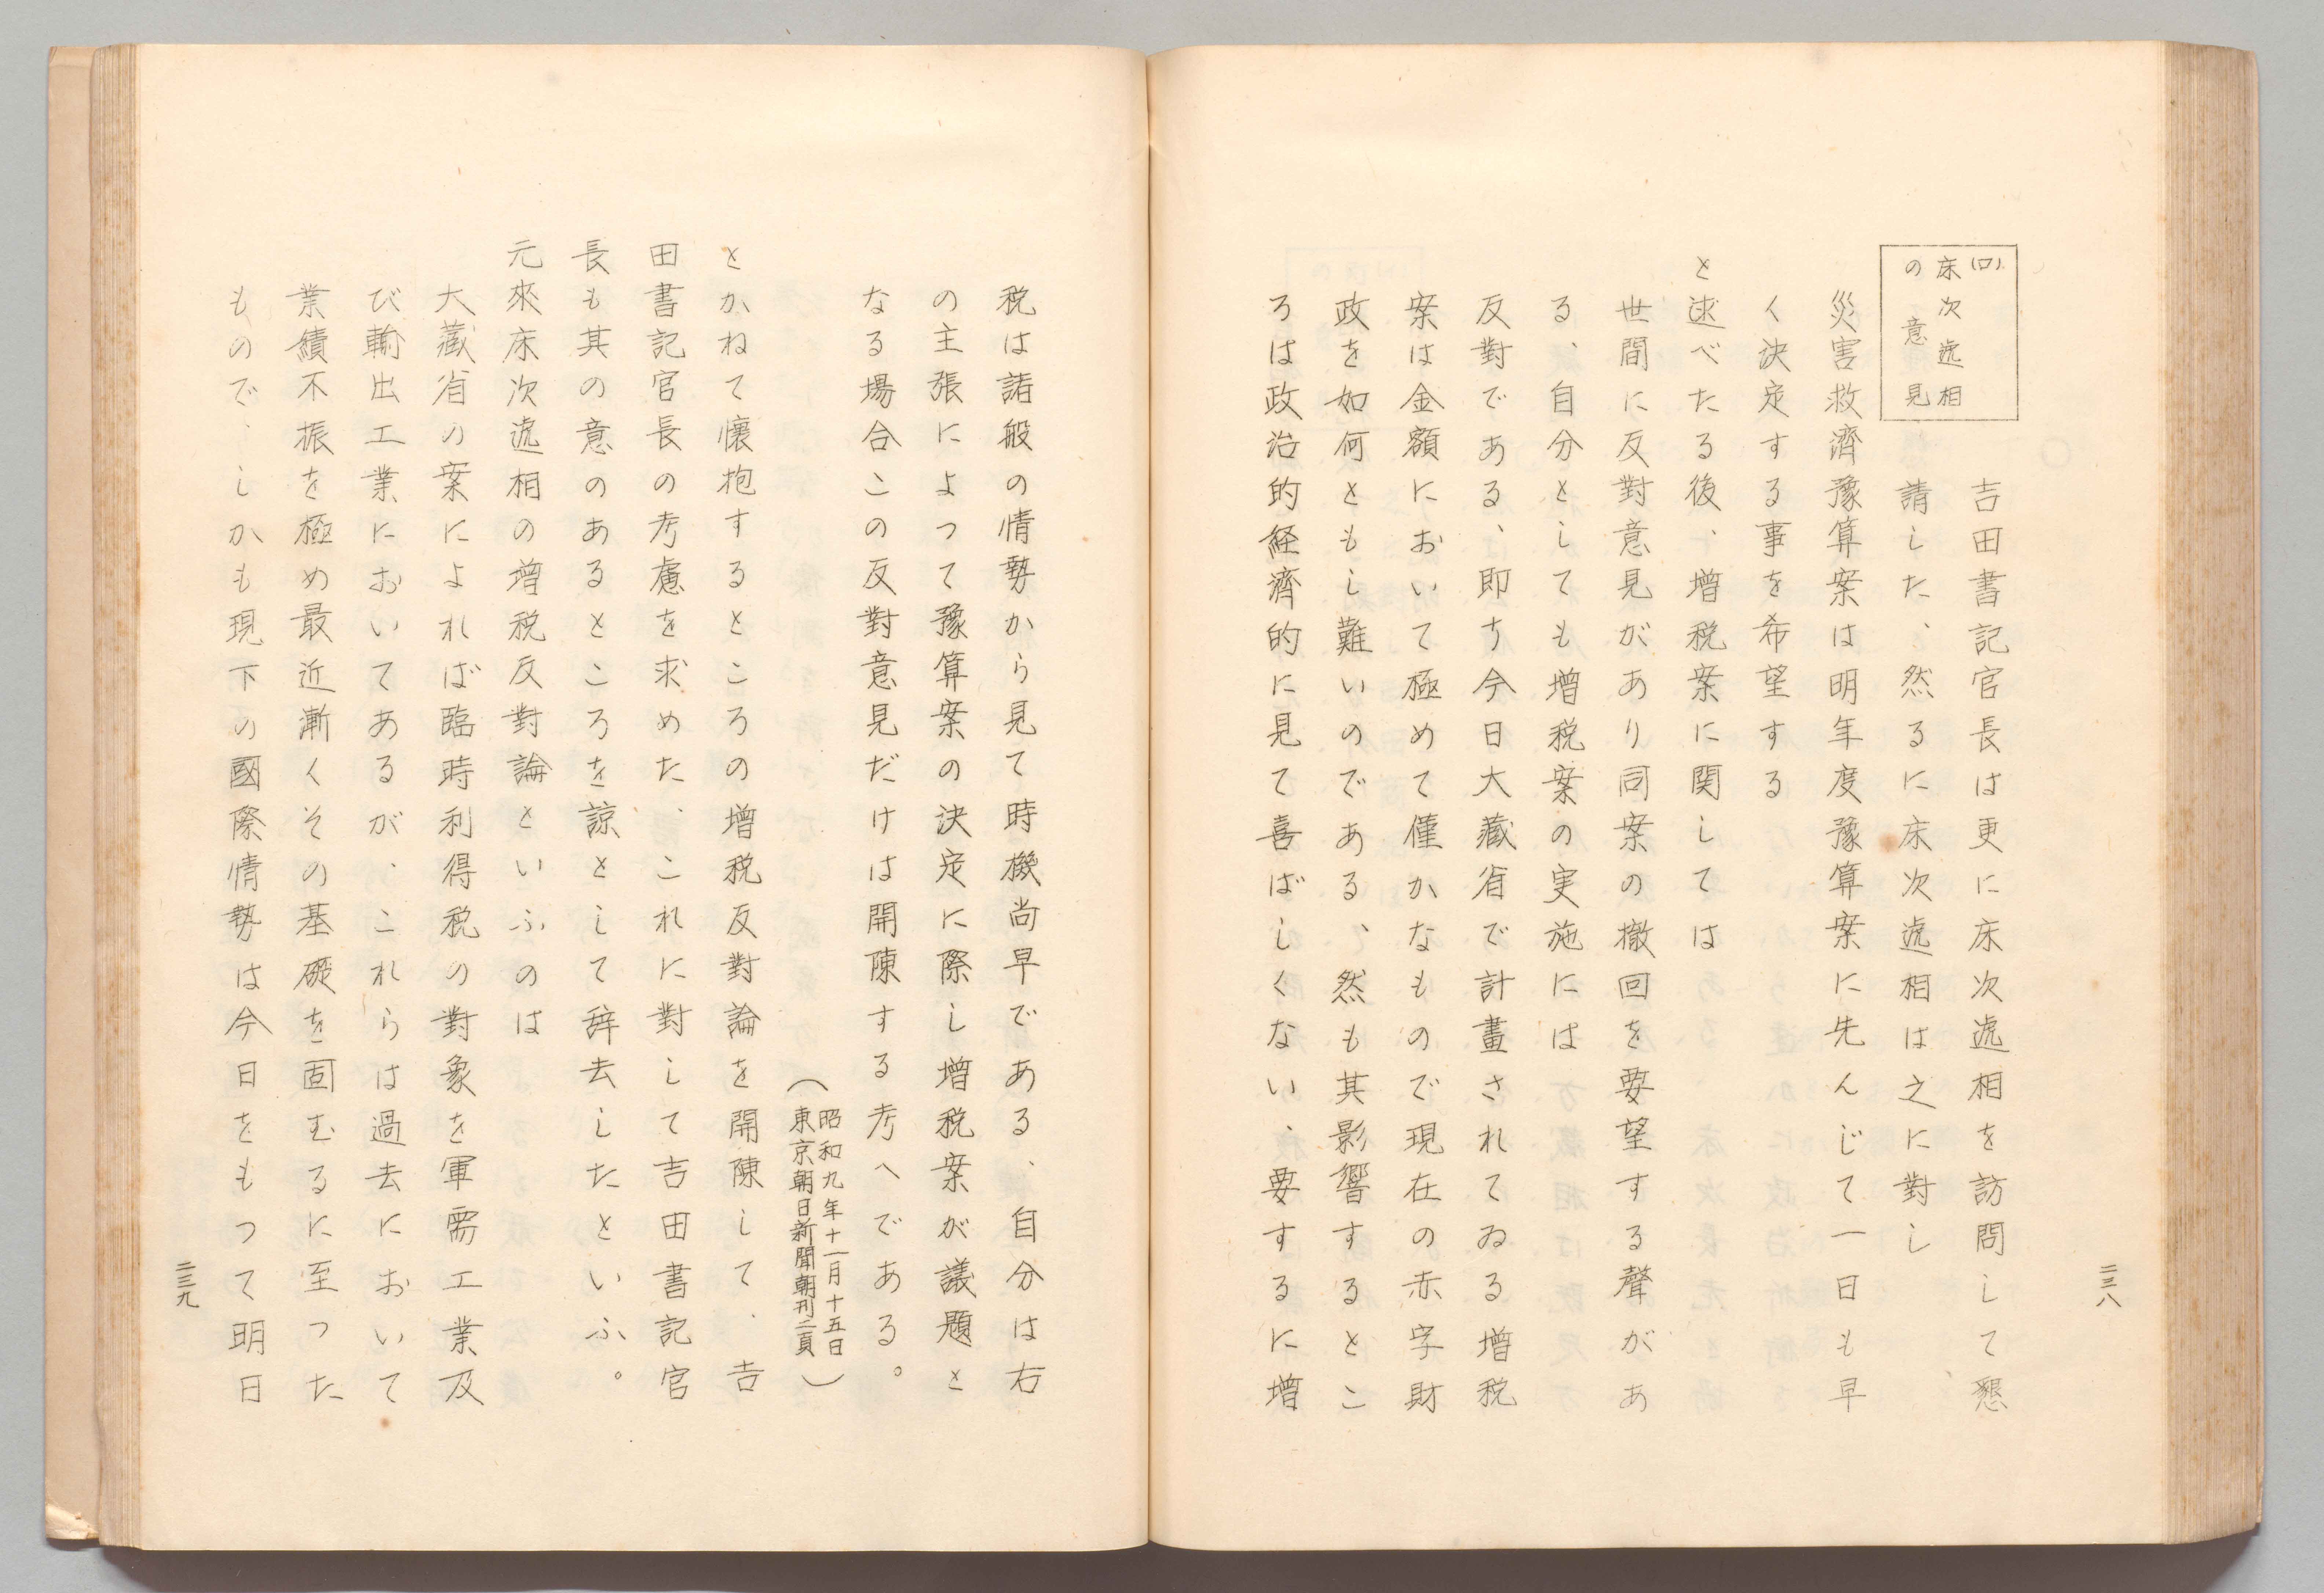 (ロ)
床次遞相
の意見
吉田書記官長は更に床次遞相を訪問して懇
請した、然るに床次遞相は之に對し
災害救濟豫算案は明年度豫算案に先んじて一日も早
く決定する事を希望する
と述べたる後、増税案に関しては
世間に反對意見があり同案の撤回を要望する聲があ
る、自分としても増税案の実施には
反對である、即ち今日大藏省で計畫されてゐる増税
案は金額において極めて僅かなもので現在の赤字財
政を如何ともし難いのである、然も其影響するとこ
ろは政治的経濟的に見て喜ばしくない、要するに増
二三八
税は諸般の情勢から見て時機尚早である、自分は右
の主張によつて豫算案の決定に際し増税案が議題と
なる場合この反對意見だけは開陳する考へである。
(昭和九年十一月十五日
東京朝日新聞朝刊二頁)
とかねて懐抱するところの増税反對論を開陳して、吉
田書記官長の考慮を求めた、これに對して吉田書記官
長も其の意のあるところを諒として辞去したといふ。
元來床次遞相の増税反對論といふのは
大藏省の案によれば臨時利得税の對象を軍需工業及
び輸出工業においてあるが、これらは過去において
業績不振を極め最近漸くその基礎を固むるに至つた
もので、しかも現下の國際情勢は今日をもつて明日
二三九